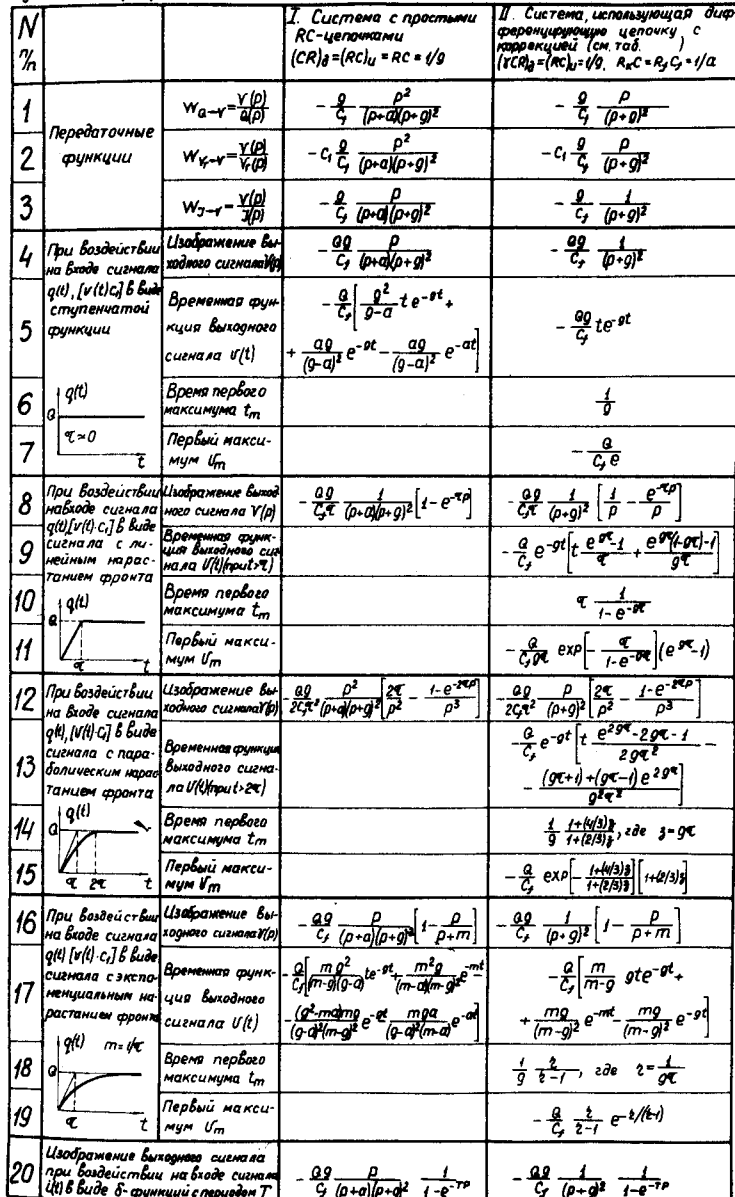 N п/п
I. Система с простыми RC-цепочками
(CR)д=(RC)и = RC = 1/g
II. Система, использующая дифференцирующую цепочку с коррекцией (см. таб. )
(γCR)д=(RC)и=1/g, RкC = RƒCƒ=1/a
1
Передаточные функции
W Q→V = V(p)/Q(p)
- g/Cƒ p²/(p+a)(p+g)²
- g/Cƒ p/(p+g)²
2
W Vг→V = V(p)/Vг(p)
- C₁ g/Cƒ p²/(p+a)(p+g)²
- C₁ g/Cƒ p/(p+g)²
3
W J→V = V(p)/J(p)
- g/Cƒ p/(p+a)(p+g)²
- g/Cƒ 1/(p+g)²
При воздействии
на входе сигнала
q(t), [v(t)C₁] в виде
ступенчатой
функции
q(t)
Q
τ≈0
t
4
Изображение выходного сигнала V(p)
- Qg/Cƒ p/(p+a)(p+g)²
- Qg/Cƒ 1/(p+g)²
5
Временная функция выходного сигнала υ(t)
- Q/Cƒ [g²/(g-a) t e^-gt +
+ ag/(g-a)² e^-gt - ag/(g-a)² e^-at]
- Qg/Cƒ te^-gt
6
Время первого максимума tm
1/g
7
Первый максимум υm
- Q/Cƒ e
При воздействии
на входе сигнала
q(t),[v(t)·C₁] в виде
сигнала с линейным нарастанием фронта
q(t)
Q
τ
t
8
Изображение выходного сигнала V(p)
- Qg/Cƒτ 1/(p+a)(p+g)² [1 - e^-τp]
- Qg/Cƒτ 1/(p+g)² [1/p - e^-τp/p]
9
Временная функция выходного сигнала υ(t)(при t>τ)
- Q/Cƒ e^-gt [t (e^gτ-1)/τ + (e^gτ(1-gτ)-1)/gτ]
10
Время первого максимума tm
τ 1/(1-e^-gτ)
11
Первый максимум υm
- Q/Cƒgτ exp[- gτ/(1-e^-gτ)](e^gτ-1)
При воздействии
на входе сигнала
q(t), [v(t)·C₁] в виде
сигнала с параболическим нарастанием фронта
q(t)
Q
τ 2τ
t
12
Изображение выходного сигнала V(p)
- Qg/2Cƒτ² p²/(p+a)(p+g)² [2τ/p² - (1-e^-2τp)/p³]
- Qg/2Cƒτ² p/(p+g)² [2τ/p² - (1-e^-2τp)/p³]
13
Временная функция выходного сигнала υ(t)(при t>2τ)
- Q/Cƒ e^-gt [t (e^2gτ-2gτ-1)/2gτ² -
- ((gτ+1)+(gτ-1)e^2gτ)/g²τ²]
14
Время первого максимума tm
1/g (1+(4/3)z)/(1+(2/3)z), где z=gτ
15
Первый максимум υm
- Q/Cƒ exp[- (1+(4/3)z)/(1+(2/3)z)][1+(2/3)z]
При воздействии
на входе сигнала
q(t) [v(t)·C₁] в виде
сигнала с экспоненциальным нарастанием фронта
q(t) m=1/τ
Q
τ
t
16
Изображение выходного сигнала V(p)
- Qg/Cƒ p/(p+a)(p+g)² [1 - p/(p+m)]
- Qg/Cƒ 1/(p+g)² [1 - p/(p+m)]
17
Временная функция выходного сигнала υ(t)
- Q/Cƒ [mg²/(m-g)(g-a) te^-gt + m²g/(m-a)(m-g)² e^-mt
- (g²-ma)mg/(g-a)²(m-g)² e^-gt - mga/(g-a)²(m-a) e^-at]
- Q/Cƒ [m/(m-g) gte^-gt +
+ mg/(m-g)² e^-mt - mg/(m-g)² e^-gt]
18
Время первого максимума tm
1/g z/(z-1), где z = 1/gτ
19
Первый максимум υm
- Q/Cƒ z/(z-1) e^-z/(z-1)
20
Изображение выходного сигнала
при воздействии на входе сигнала
i(t) в виде δ-функций с периодом T
- Qg/Cƒ p/(p+a)(p+g)² 1/(1-e^-Tp)
- Qg/Cƒ 1/(p+g)² 1/(1-e^-Tp)